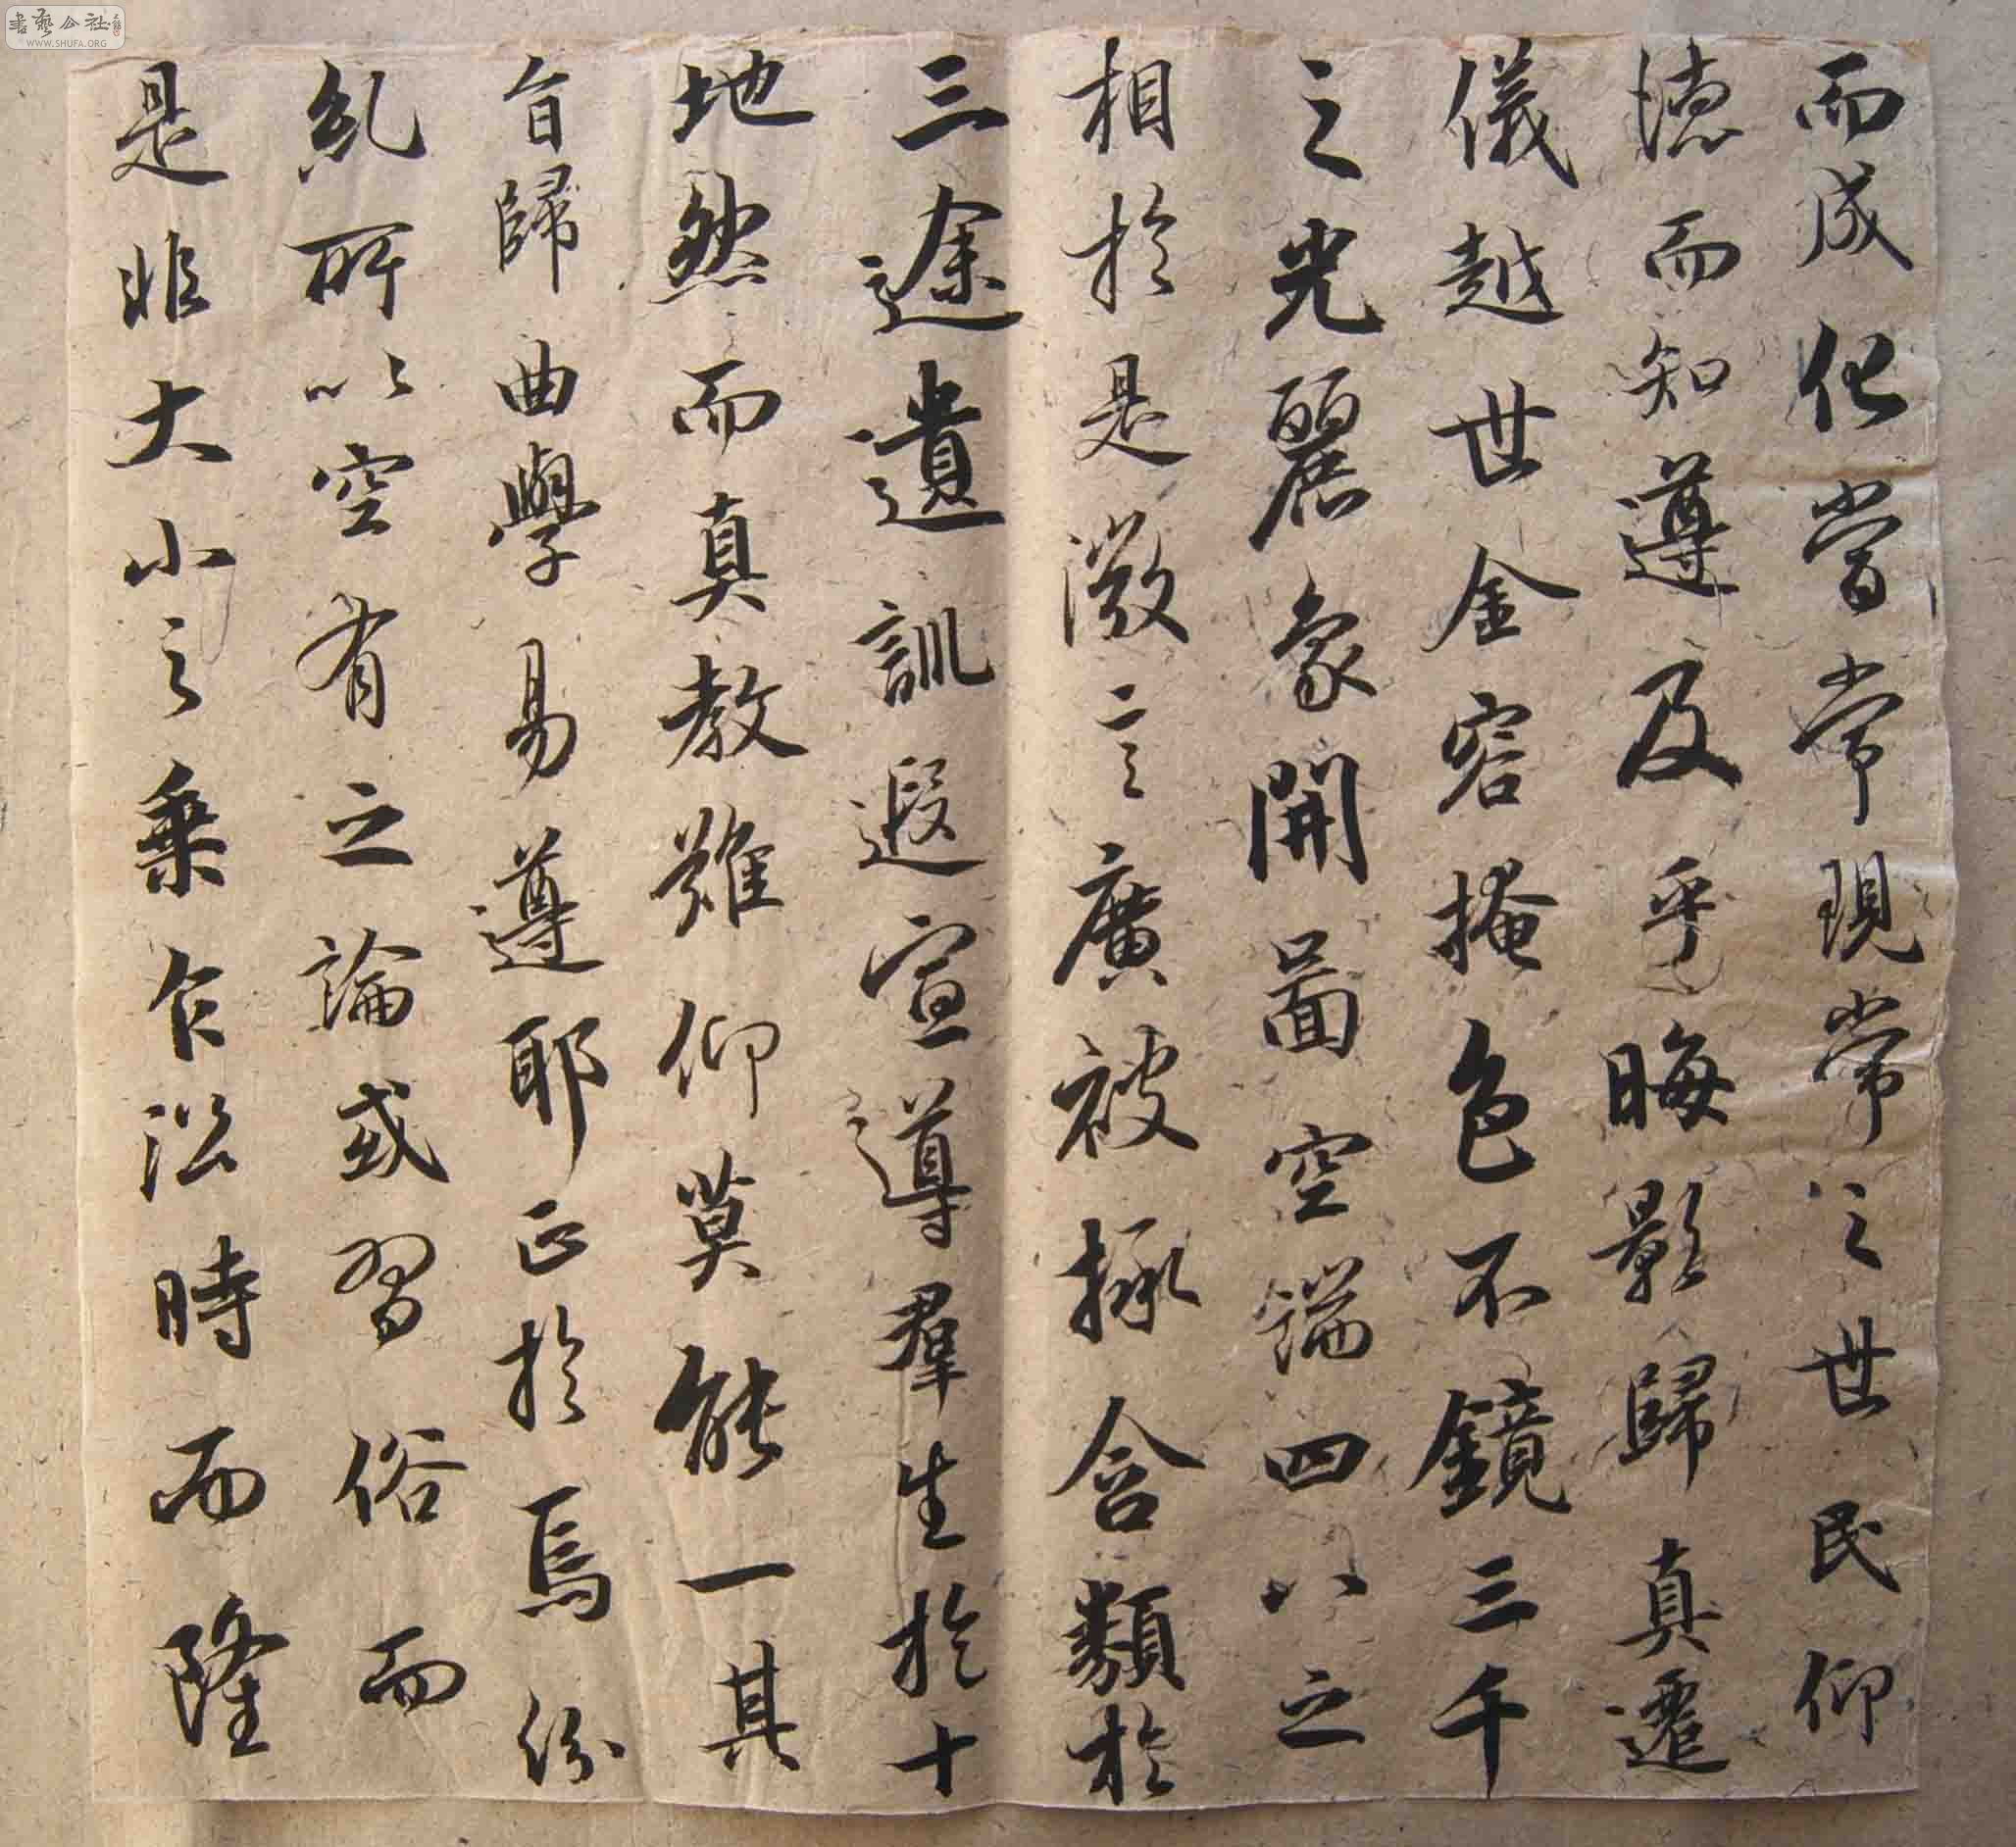 書藝公社
WWW.SHUFA.ORG
而成化當常現常之世民仰
德而知遵及乎晦影歸真遷
儀越世金容掩色不鏡三千
之光麗象開圖空端四八之
相於是微言廣被拯含類於
三途遺訓遐宣導羣生於十
地然而真教難仰莫能一其
旨歸曲學易遵耶正於焉紛
糺所以空有之論或習俗而
是非大小之乘乍沿時而隆